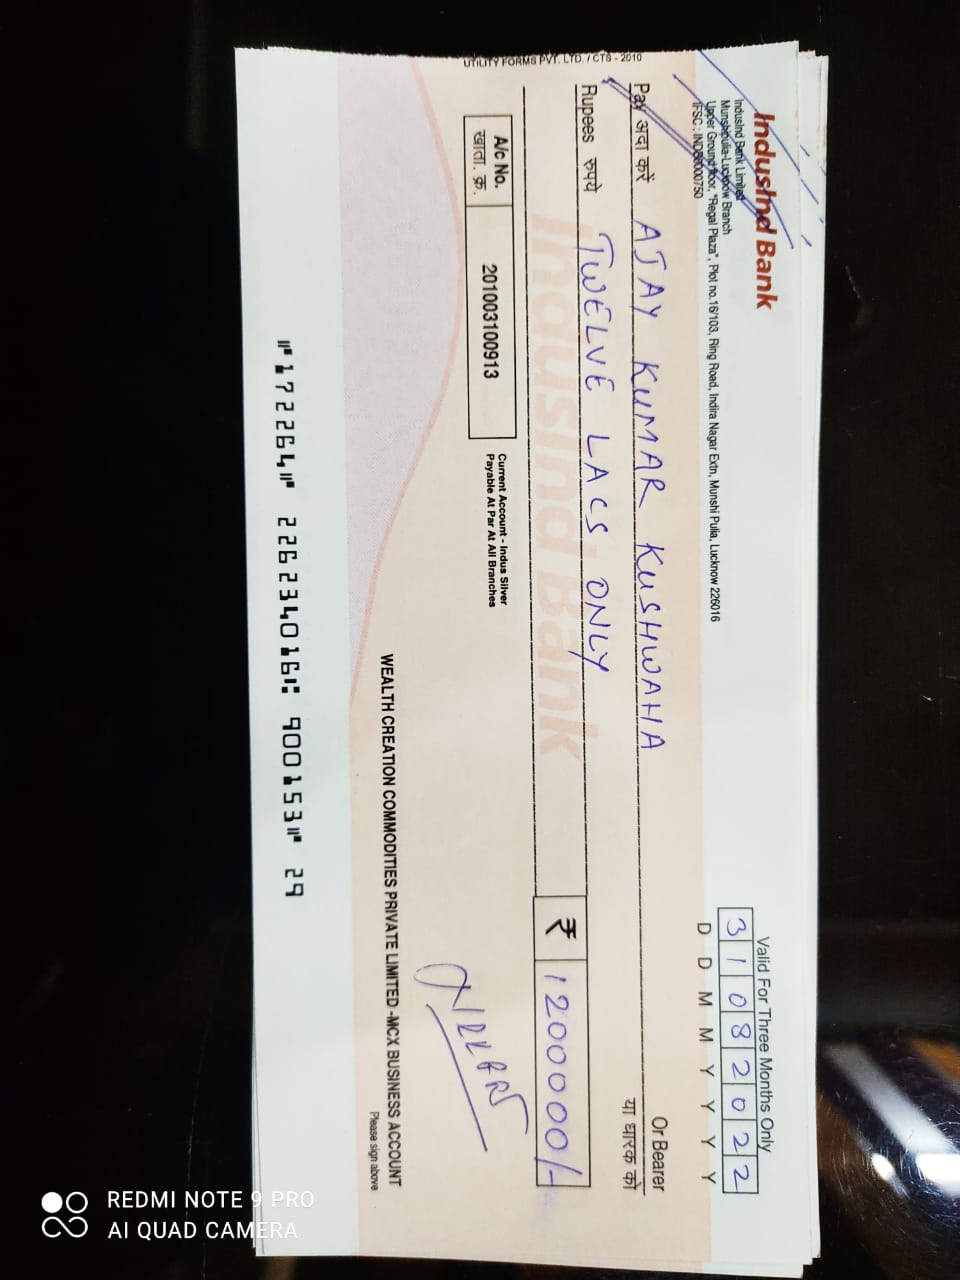 IndusInd Bank
IndusInd Bank Limited
Munshipulia-Lucknow Branch
Upper Ground floor, "Regal Plaza", Plot no.16/103, Ring Road, Indira Nagar Extn, Munshi Pulia, Lucknow 226016
IFSC : INDB0000750
Valid For Three Months Only
3 1 0 8 2 0 2 2
D D M M Y Y Y Y
Pay अदा करें AJAY KUMAR KUSHWAHA Or Bearer
या धारक को
Rupees रुपये TWELVE LACS ONLY
₹ 1200000/-
IndusInd Bank
A/c No.
खाता. क्र.
201003100913
Current Account - Indus Silver
Payable At Par At All Branches
WEALTH CREATION COMMODITIES PRIVATE LIMITED -MCX BUSINESS ACCOUNT
Please sign above
UTILITY FORMS PVT. LTD. / CTS - 2010
⑈172264⑈ 226234016⑆ 900153⑈ 29
REDMI NOTE 9 PRO
AI QUAD CAMERA